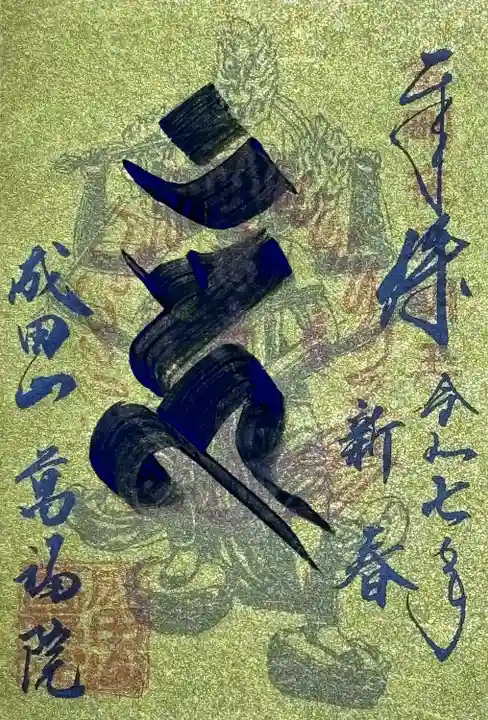 奉拝
令和七年
新春
成田山 萬福院